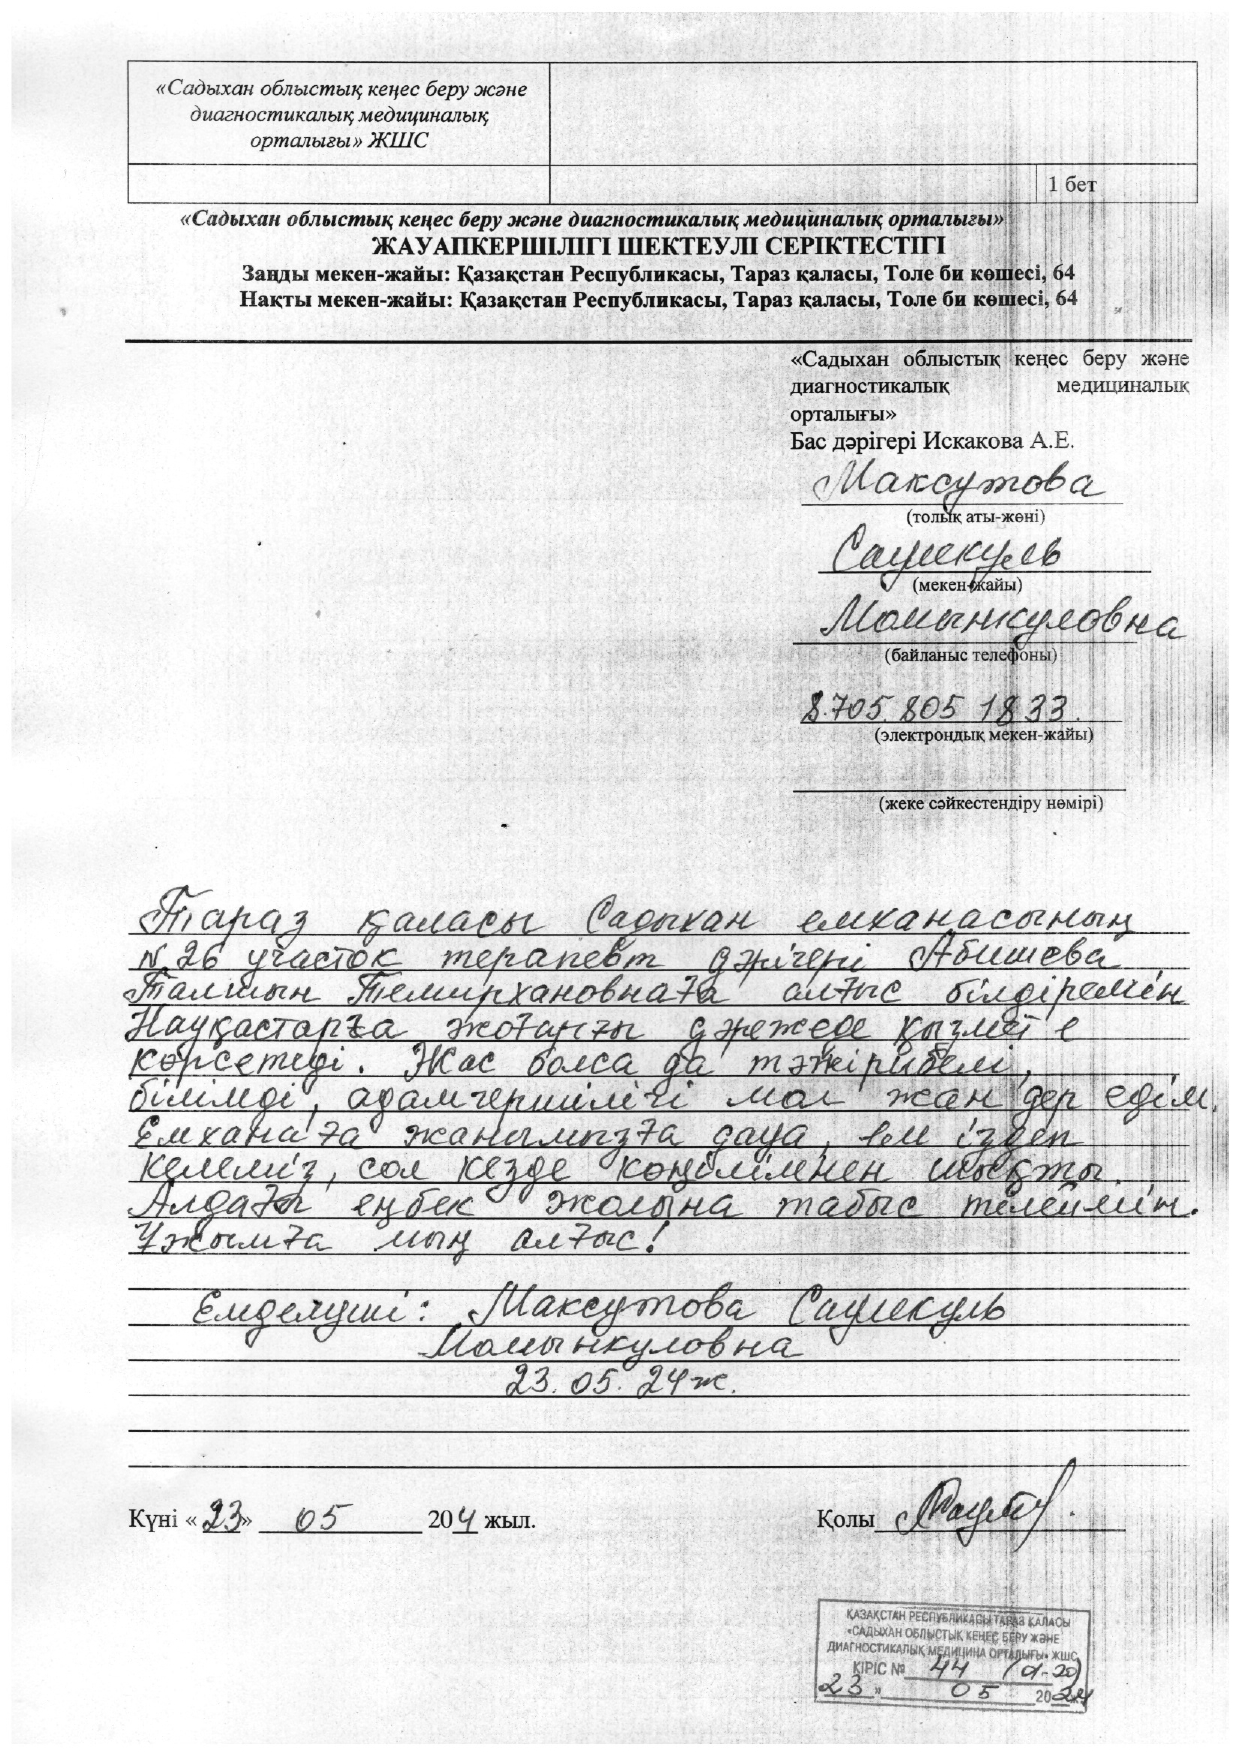 «Садыхан облыстық кеңес беру және
диагностикалық медициналық
орталығы» ЖШС
1 бет
«Садыхан облыстық кеңес беру және диагностикалық медициналық орталығы»
ЖАУАПКЕРШІЛІГІ ШЕКТЕУЛІ СЕРІКТЕСТІГІ
Заңды мекен-жайы: Қазақстан Республикасы, Тараз қаласы, Толе би көшесі, 64
Нақты мекен-жайы: Қазақстан Республикасы, Тараз қаласы, Толе би көшесі, 64
«Садыхан облыстық кеңес беру және
диагностикалық медициналық
орталығы»
Бас дәрігері Искакова А.Е.
Максутова
(толық аты-жөні)
Саулекуль
(мекен-жайы)
Момынкуловна
(байланыс телефоны)
8.705. 805 18 33.
(электрондық мекен-жайы)
(жеке сәйкестендіру нөмірі)
Тараз қаласы Садыхан емханасының
№ 26 участок терапевт дәрігері Абишева
Талшын Темирхановнаға алғыс білдіремін
Науқастарға жоғарғы дәрежеде қызмет е
көрсетеді. Жас болса да тәжірибелі,
білімді, адамгершілігі мол жан дер едім.
Емханаға жанымызға дауа, ем іздеп
келеміз, сол кезде көңілімнен шықты.
Алдағы еңбек жолына табыс тілеймін.
Ұжымға мың алғыс!
Емделуші: Максутова Саулекуль
Момынкуловна
23. 05. 24ж.
Күні «23» 05 204 жыл.
Қолы
ҚАЗАҚСТАН РЕСПУБЛИКАСЫ ТАРАЗ ҚАЛАСЫ
«САДЫХАН ОБЛЫСТЫҚ КЕҢЕС БЕРУ ЖӘНЕ
ДИАГНОСТИКАЛЫҚ МЕДИЦИНА ОРТАЛЫҒЫ» ЖШС
КІРІС № 44 (01-20)
23 » 05 2024